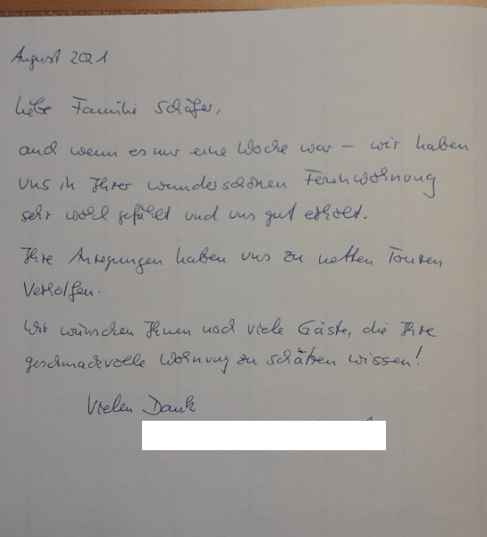 August 2021
Liebe Familie Schäfer,
auch wenn es nur eine Woche war – wir haben
uns in Ihrer wunderschönen Ferienwohnung
sehr wohl gefühlt und uns gut erholt.
Ihre Anregungen haben uns zu netten Touren
verholfen.
Wir wünschen Ihnen noch viele Gäste, die Ihre
geschmackvolle Wohnung zu schätzen wissen!
Vielen Dank